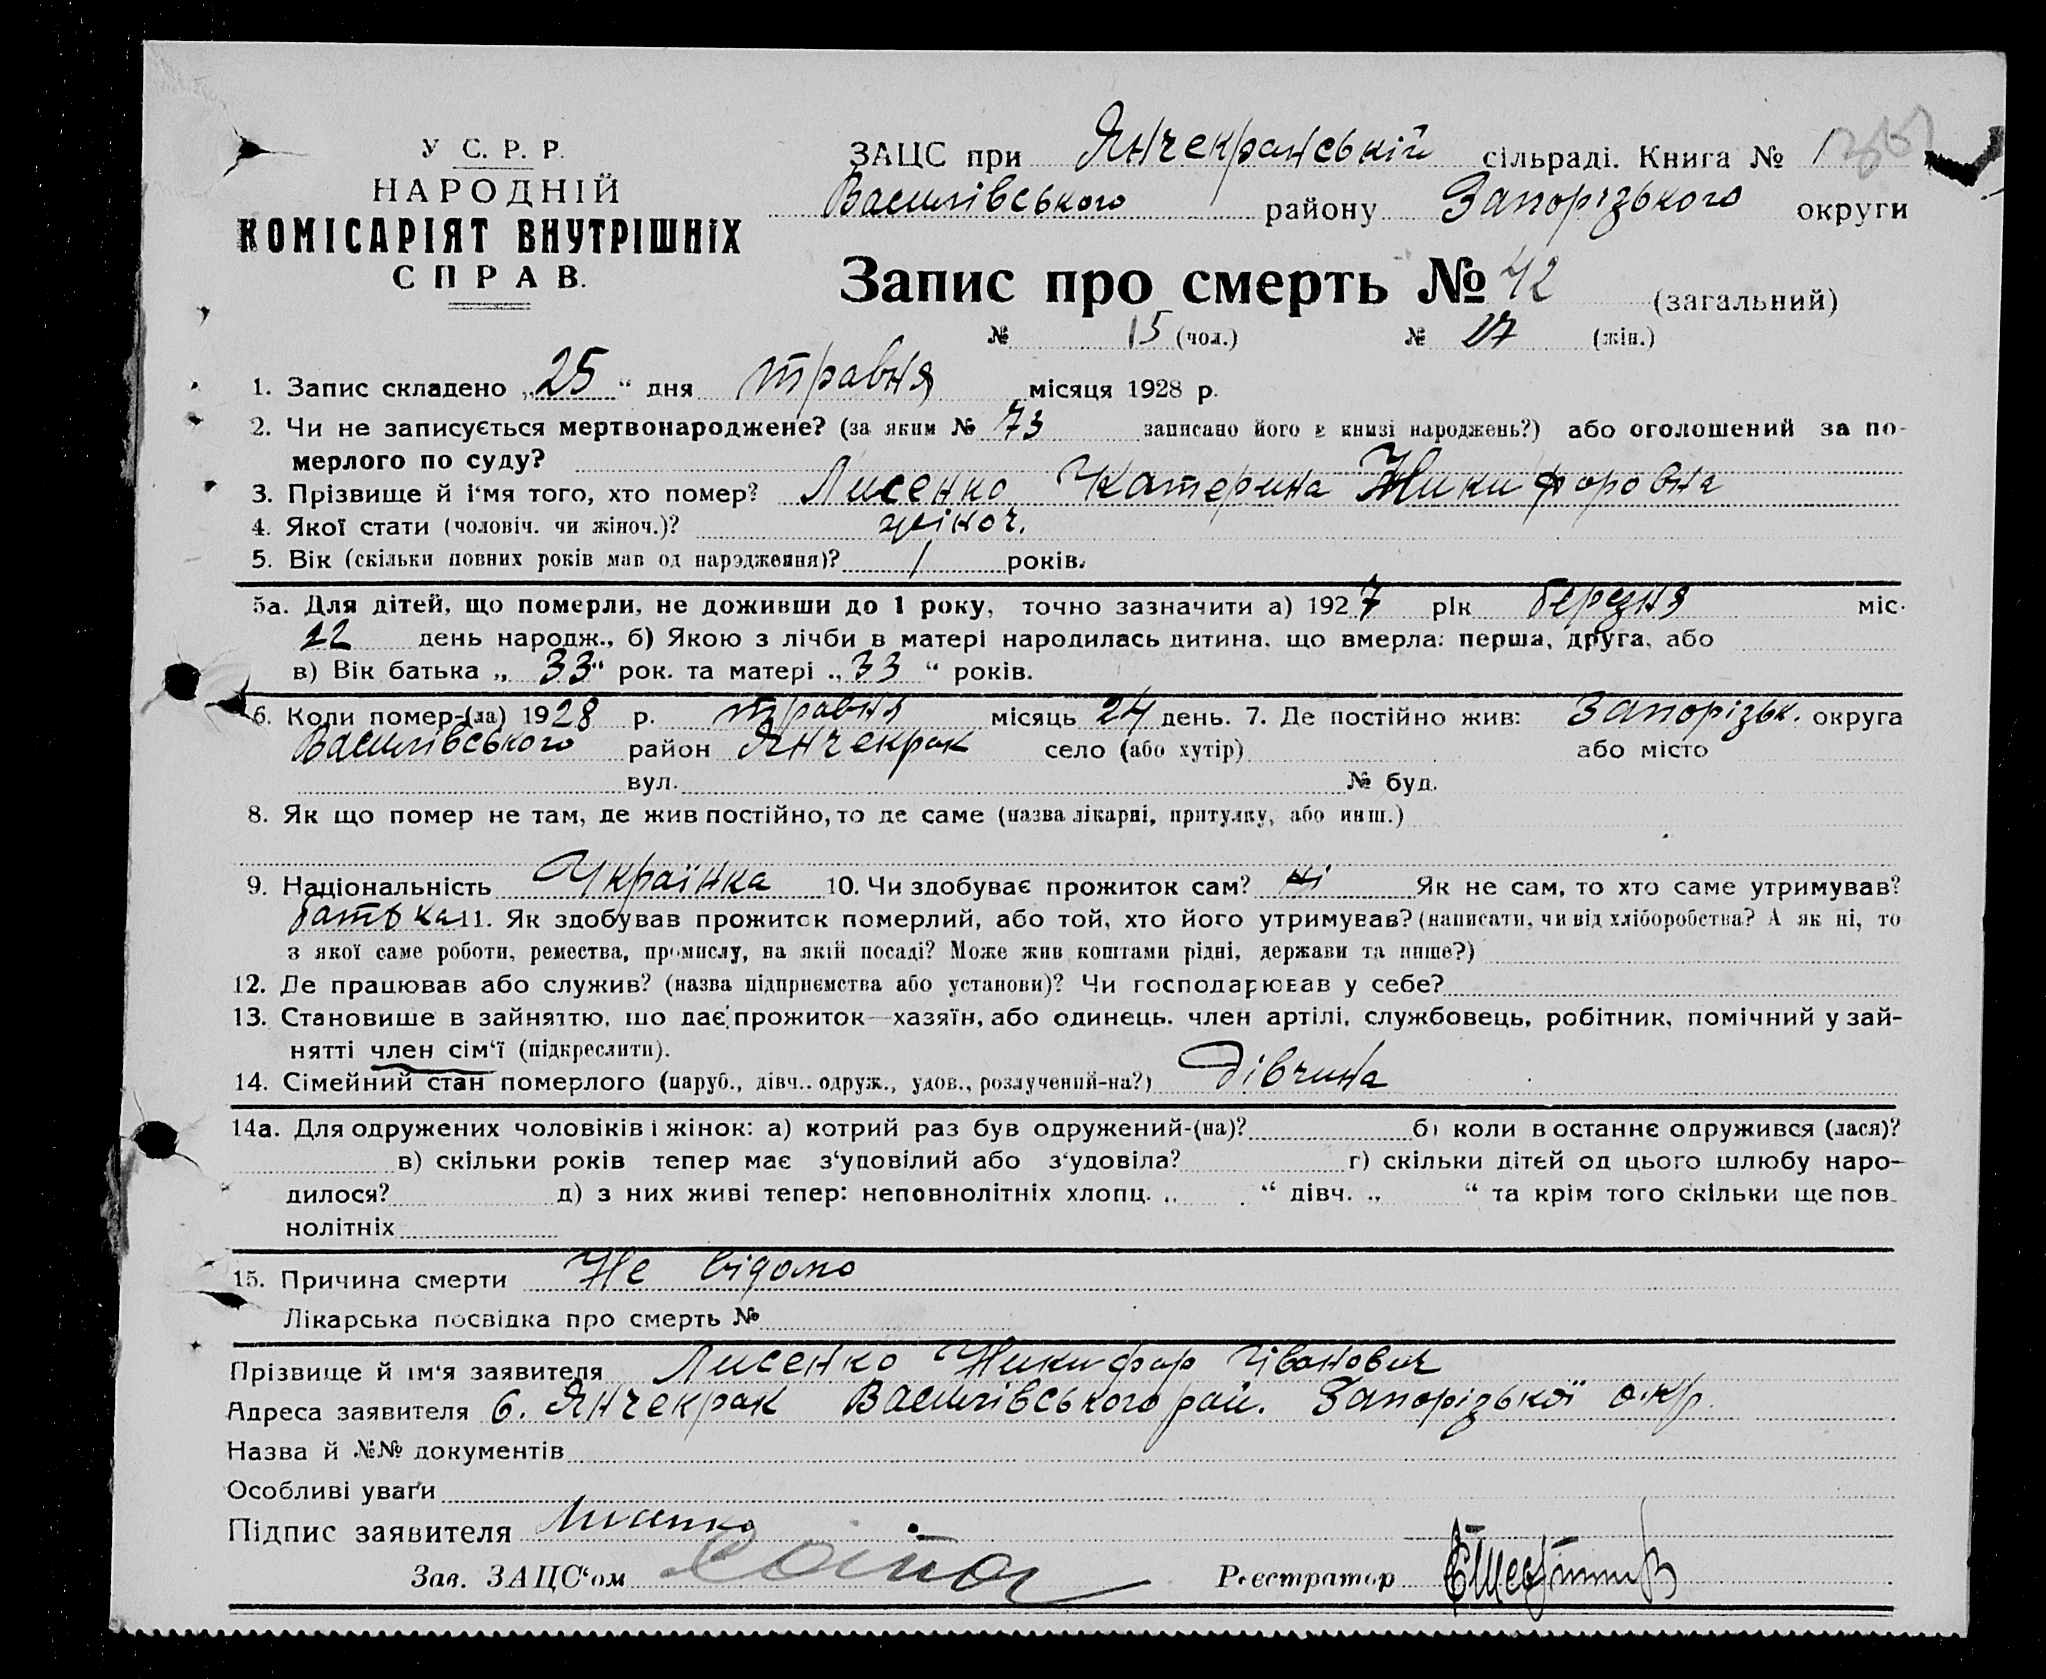 У. С. Р. Р.
НАРОДНІЙ
КОМІСАРІЯТ ВНУТРІШНІХ
СПРАВ.
ЗАЦС при Янчекранській сільраді. Книга № 1
Василівського району Запорізького округи
Запис про смерть № 42 (загальний)
№ 15 (чол.) № 27 (жін.)
1. Запис складено „25“ дня травня місяця 1928 р.
2. Чи не записується мертвонароджене? (за яким № 73 записано його в книзі народжень?) або оголошений за по-
мерлого по суду?
3. Прізвище й і'мя того, хто помер? Лисенко Катерина Никифоровна
4. Якої стати (чоловіч. чи жіноч.)? жіноч.
5. Вік (скільки повних років мав од народження)? 1 років.
5а. Для дітей, що померли, не доживши до 1 року, точно зазначити а) 1927 рік березня міс.
22 день народж., б) Якою з лічби в матері народилась дитина, що вмерла: перша, друга, або
в) Вік батька „33“ рок. та матері „33“ років.
6. Коли помер-(ла) 1928 р. травня місяць 24 день. 7. Де постійно жив: Запорізьк. округа
Василівського район Янчекрак село (або хутір) або місто
вул. № буд.
8. Як що помер не там, де жив постійно, то де саме (назва лікарні, притулку, або инш.)
9. Національність Українка 10. Чи здобуває прожиток сам? ні Як не сам, то хто саме утримував?
батька 11. Як здобував прожиток померлий, або той, хто його утримував? (написати, чи від хліборобства? А як ні, то
з якої саме роботи, ремества, промислу, на якій посаді? Може жив коштами рідні, держави та инше?)
12. Де працював або служив? (назва підприємства або установи)? Чи господарював у себе?
13. Становище в зайняттю, що дає прожиток—хазяїн, або одинець, член артілі, службовець, робітник, помічний у зай-
нятті член сім'ї (підкреслити).
14. Сімейний стан померлого (паруб., дівч.. одруж., удов., розлучений-на?) Дівчина
14а. Для одружених чоловіків і жінок: а) котрий раз був одружений-(на)? б) коли востаннє одружився (лася)?
в) скільки років тепер має з'удовілий або з'удовіла? г) скільки дітей од цього шлюбу наро-
дилося? д) з них живі тепер: неповнолітніх хлопц. „ “ дівч. „ “ та крім того скільки ще пов-
нолітніх
15. Причина смерти Не відомо
Лікарська посвідка про смерть №
Прізвище й ім'я заявителя Лисенко Никифор Іванович
Адреса заявителя с. Янчекрак Василівського рай. Запорізької окр.
Назва й №№ документів
Особливі уваги
Підпис заявителя Лисенко
Зав. ЗАЦС'ом
Реєстратор